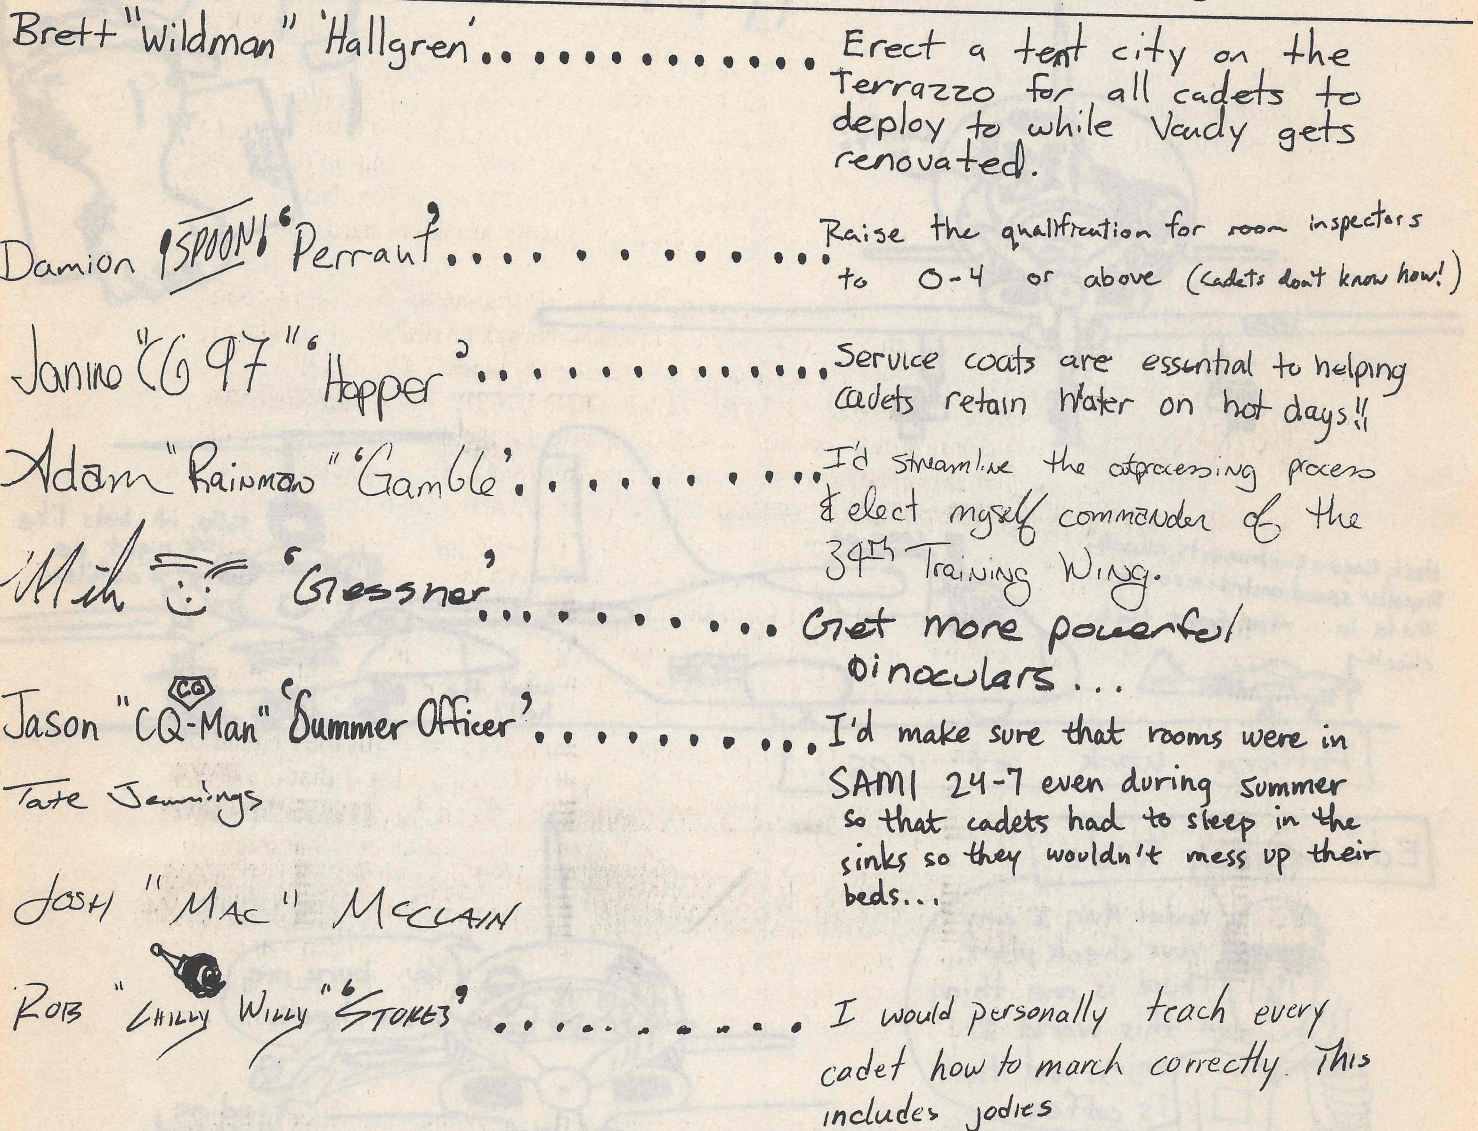 Brett "Wildman" 'Hallgren'............ Erect a tent city on the
Terrazzo for all cadets to
deploy to while Vandy gets
renovated.
Damion !SPOON! 'Perraut'........... Raise the qualification for room inspectors
to O-4 or above (cadets don't know how!)
Janine "CG 97" 'Hopper'............. Service coats are essential to helping
cadets retain Water on hot days!!
Adam "Rainman" 'Gamble'.......... I'd streamline the outprocessing process
& elect myself commander of the
34th Training Wing.
'Gessner'.......... Get more powerful
binoculars...
CQ
Jason "CQ-Man" 'Summer Officer'........... I'd make sure that rooms were in
Tate Jennings SAMI 24-7 even during summer
so that cadets had to sleep in the
sinks so they wouldn't mess up their
beds...
Josh "Mac" McClain
Rob "Chilly Willy" 'Stokes'........... I would personally teach every
cadet how to march correctly. This
includes jodies